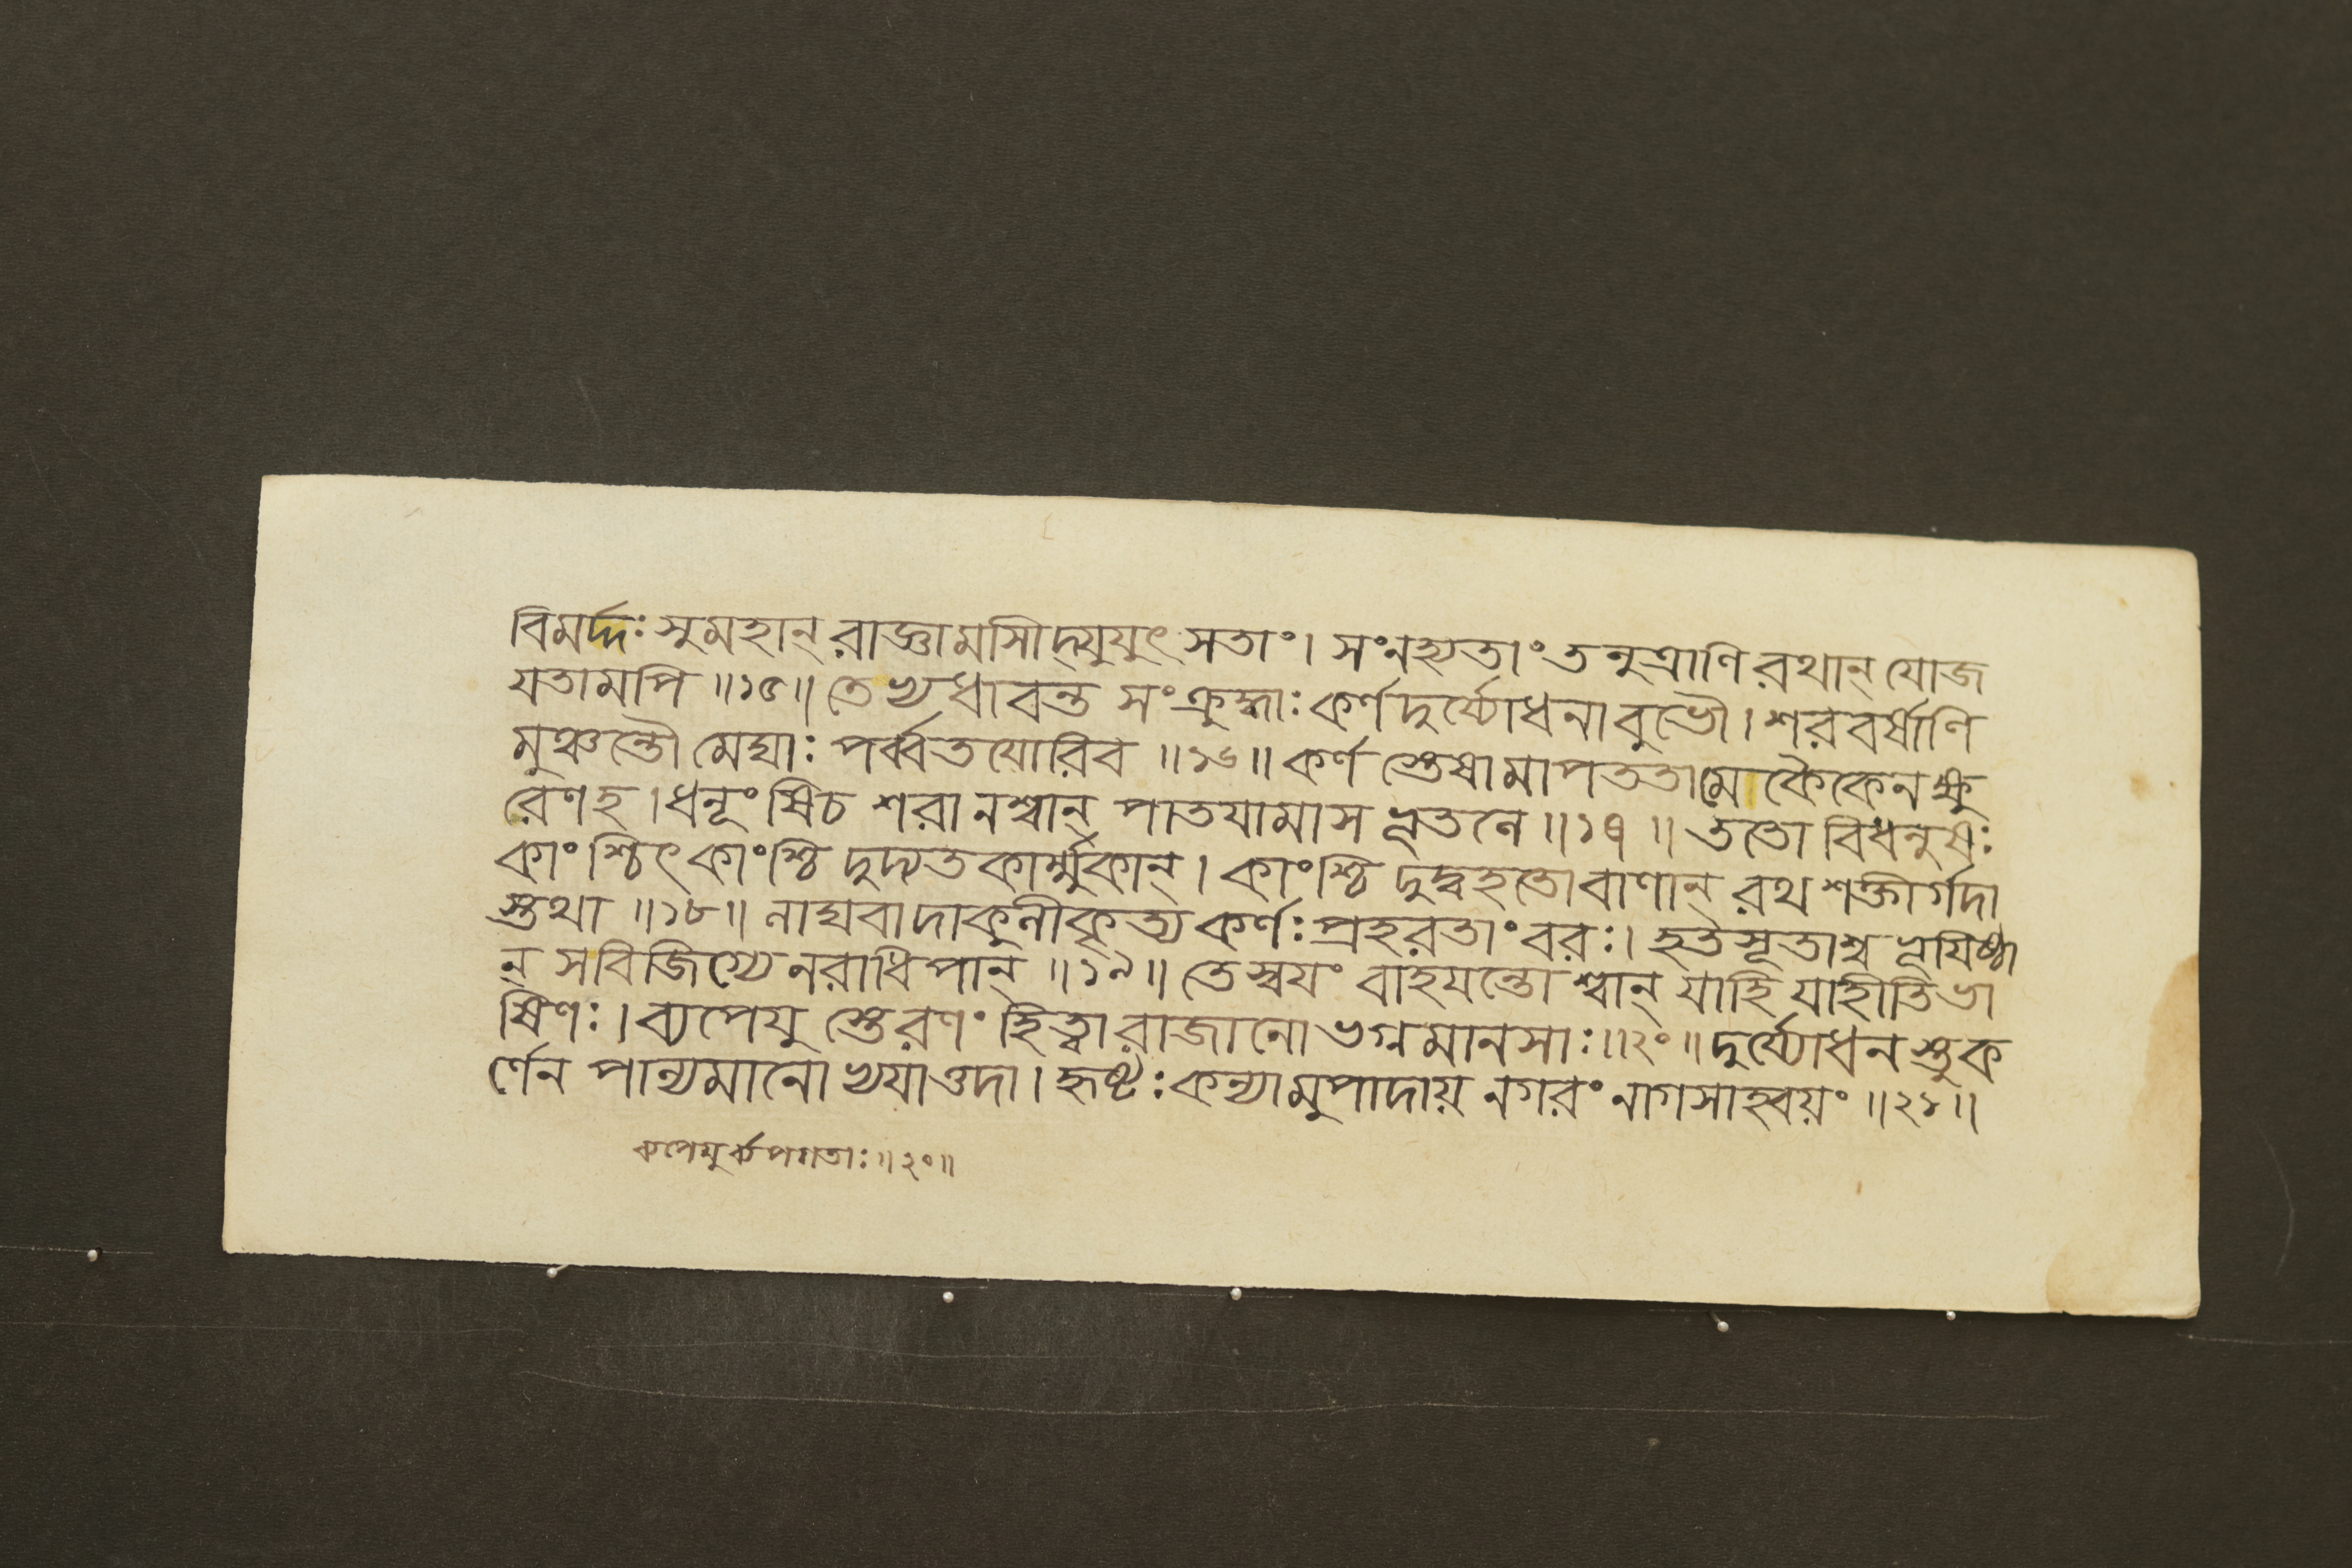 বিমর্দ্দঃ সুমহান্ রাজ্ঞামাসীদ্যুযুৎসতাং। সংনহ্যতাং তনুত্রাণি রথান্ যোজ
যতামপি ॥১৫॥ তেভ্যধাবন্ত সংক্রুদ্ধাঃ কর্ণদুর্য্যোধনাবুভৌ। শরবর্ষাণি
মুঞ্চন্তৌ মেঘাঃ পর্ব্বতযোরিব ॥১৬॥ কর্ণ স্তেষামাপততামেকৈকেন ক্ষু
রেণহ। ধনূংষিচ শরানশ্বান্ পাতযামাস ভূতলে ॥১৭॥ ততো বিধনুষঃ
কাংশ্চিৎ কাংশ্চি দুদ্যতকার্ম্মুকান্। কাংশ্চি দুদ্বহতো বাণান্ রথ শক্তীর্গদা
স্তথা ॥১৮॥ লাঘবাদাকুলীকৃত্য কর্ণঃ প্রহরতাং বরঃ। হতসূতাশ্চ ভূযিষ্ঠা
ন্ সবিজিগ্যে নরাধিপান্ ॥১৯॥ তে স্বযং বাহযন্তোশ্বান্ যাহি যাহীতিভা
ষিণঃ। ব্যপেযু স্তেরণং হিত্বা রাজানো ভগ্নমানসাঃ ॥২০॥ দুর্য্যোধনস্তুক
র্ণেন পাল্যমানোভ্যযাত্তদা। হৃষ্টঃ কন্যামুপাদায় নগরং নাগসাহ্বয়ং ॥২১॥
ব্যপেযুর্ব্যপগতাঃ ॥২০॥